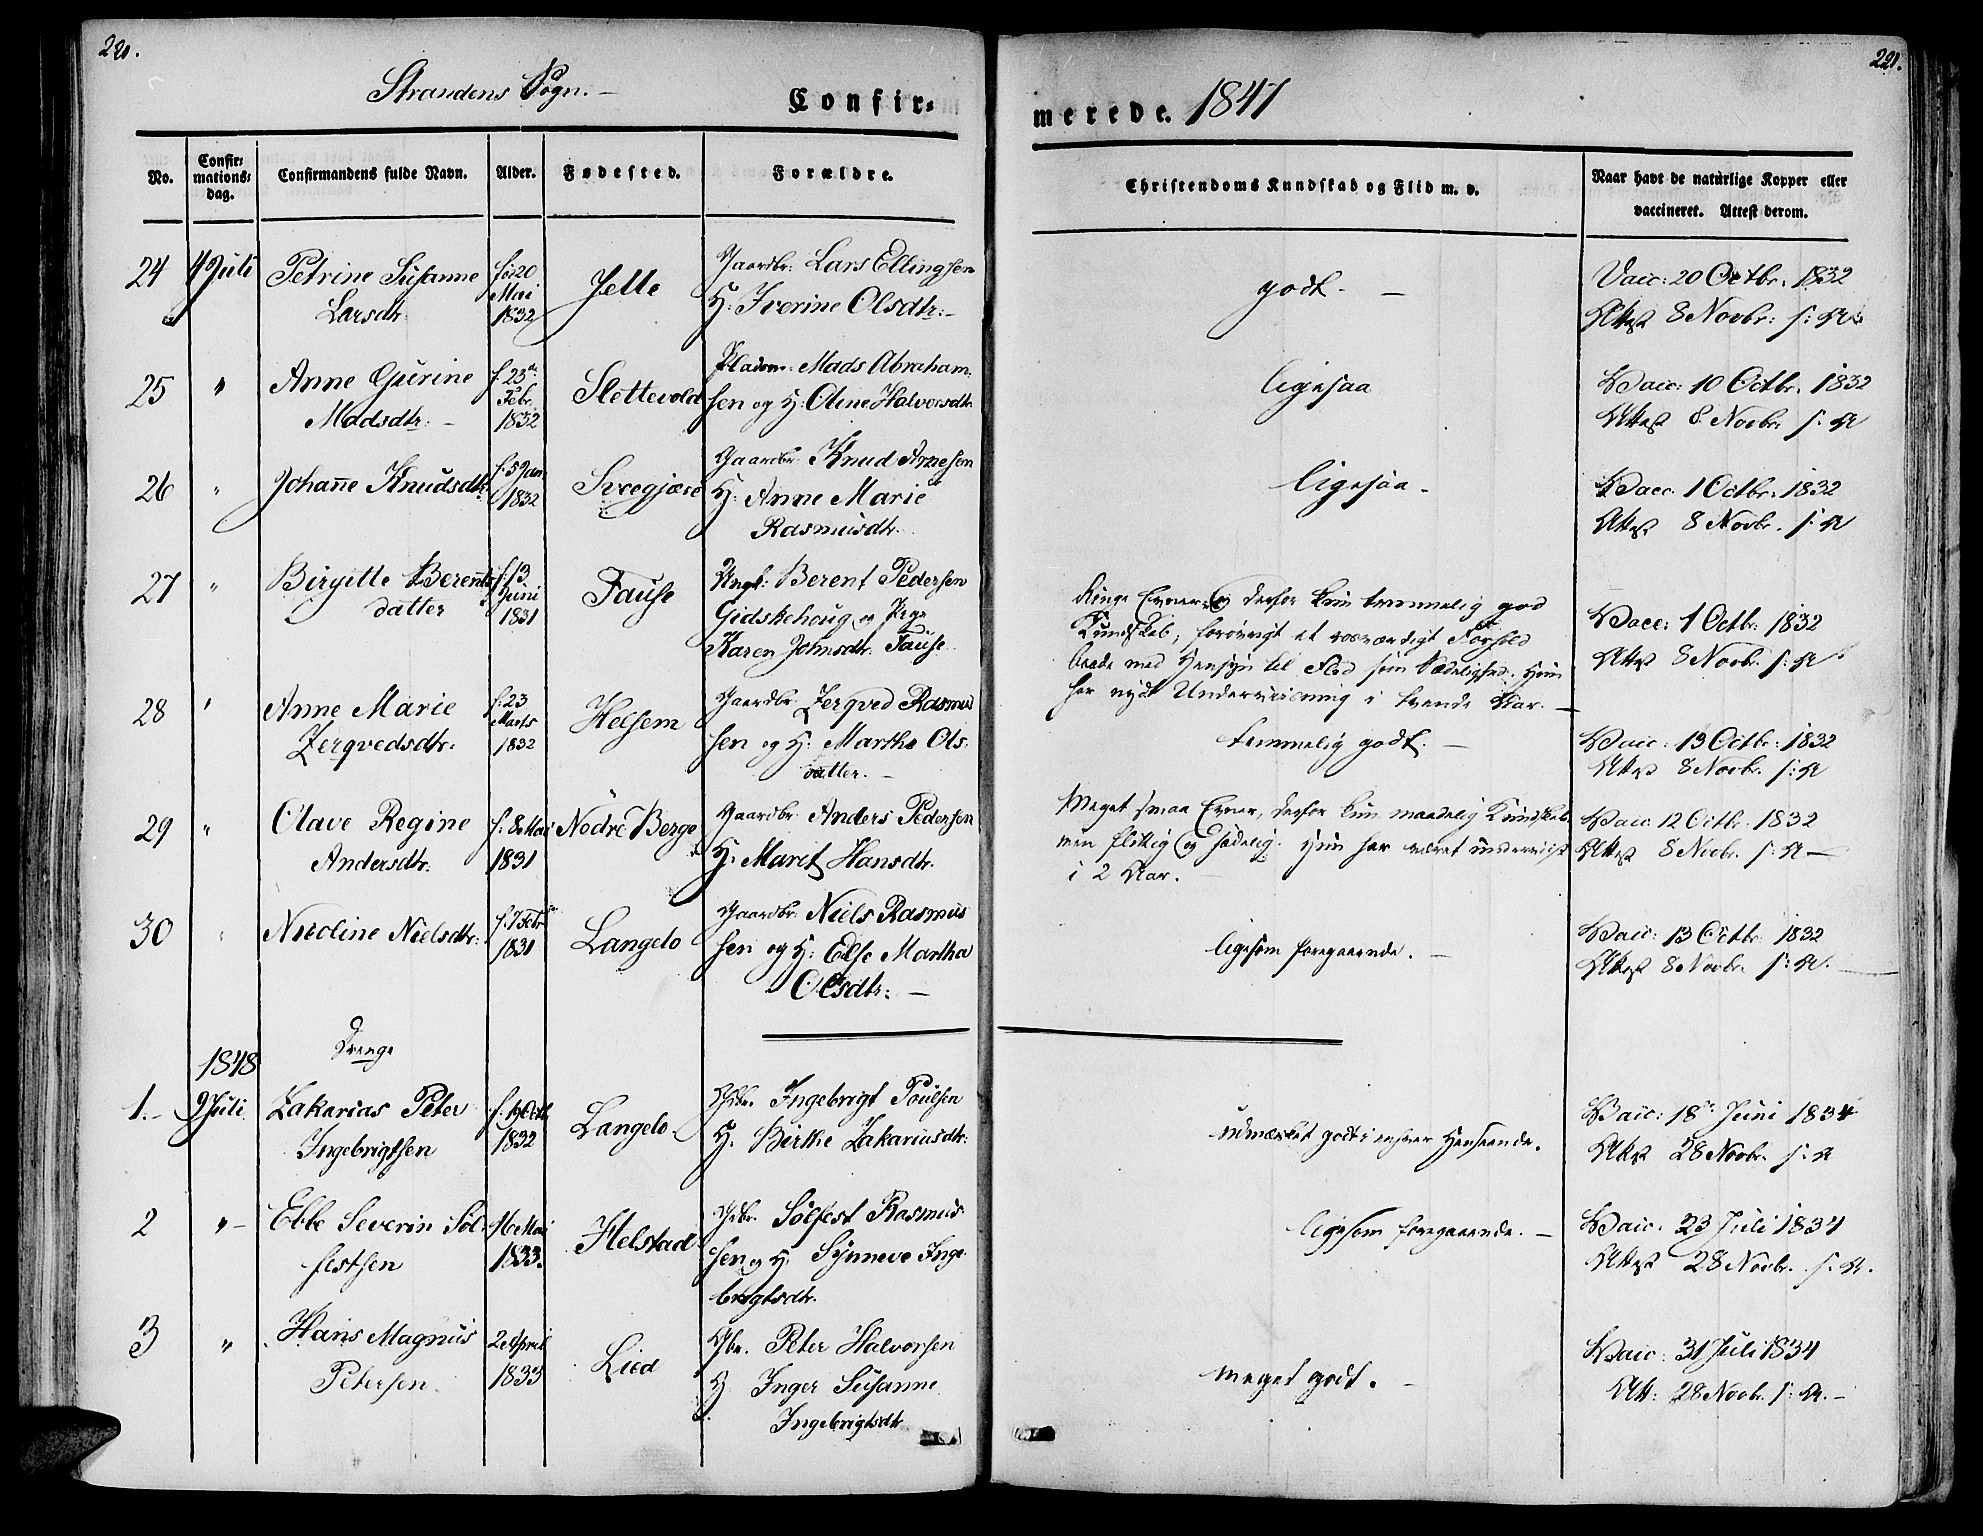 220.
221.
Strandens Sogn.
Confir=
merede. 1847
No.
Confir=
mations=
dag.
Confirmandens fulde Navn.
Alder.
Fødested.
Forældre.
Christendoms Kundskab og Flid m. v.
Naar havt de naturlige Kopper eller
vaccineret. Attest derom.
24 4 Juli Petrine Susanne
Larsdtr.
20
Mai
1832
Gaardbr: Lars Ellingsen
H: Iverine Olsdtr:
godt. —
Vacc: 20 Octbr. 1832
Attest 8 Novbr: s: A
25 " Anne Gurine
Madsdtr:
f. 23de
Febr.
1832
Slettevold
Mads Abraham=
sen og H: Oline Halvorsdtr.
ligesaa
Vacc: 10 Octbr. 1832
Attest 8 Novbr. s: A
26 " Johanne Knudsdtr.
f. 5 Jan.
1832
Gaardbr. Knud Arnesen
H: Anne Marie
Rasmusdtr.
ligesaa.
Vacc: 1 Octbr. 1832
Attest 8 Novbr. s: A
27 " Birgitte Berents
datter
f. 13
Juni
1831
Fause
Ungk: Berent Pedersen
Gidskehoug og Pige
Karen Johnsdtr. Fause
Ringe Evner og derfor kun temmelig god
Kundskab, forøvrigt et roesværdigt Forhold
baade med Hensyn til Flid som Sædelighed. Hun
har nydt Underviisning i tvende Aar. —
Vacc: 1 Octbr. 1832
Attest 8 Novbr. s: A
28 " Anne Marie
Zerqvedsdtr.
f. 23
Marts
1832
Helsem
Gaardbr. Zerqved Rasmus
sen og H: Martha Ols=
datter. —
temmelig godt. —
Vacc: 13 Octbr: 1832
Attest 8 Novbr. s: A
29 " Olave Regine
Andersdtr.
f. 8 Mai
1831
Nödre Berge
Gaardbr. Anders Pedersen
H: Maret Hansdtr.
Meget smaa Evner, derfor kun maadelig Kundskab,
men flittig og sædelig. Hun har været underviist
i 2 Aar.
Vacc: 12 Octbr. 1832
Attest 8 Novbr. s: A —
30 " Nicoline Nielsdtr:
f. 7 Febr
1831
Langelo
Gaardbr: Niels Rasmus
sen og H: Else Martha
Olsdtr: —
ligesom foregaaende. —
Vacc: 13 Octbr. 1832
Attest 8 Novbr. s: A.
1848
Drenge
1. 9 Juli Zakarias Peter
Ingebrigtsen
1832
Langelo
Gbr. Ingebrigt Poulsen
H. Birthe Zakariasdtr:
udmærket godt i enhver Henseende.
Vacc: 18de Juni 1834
Attest 28 Novbr. s: A
2 " Ebbe Severin Sol=
festsen
16 Mai
1833.
Helstad
Gdbr. Solfest Rasmus=
sen og H. Synneve Inge=
brigtsdtr.
ligesom foregaaende. —
Vacc: 23 Juli 1834
Attest 28 Novbr. s: A.
3 " Hans Magnus
Petersen
2 April
1833
Lied
Gbr. Peter Halvorsen
H Inger Susanne
Ingebrigtsdtr
meget godt. —
Vacc: 31 Juli 1834
Att: 28 Novbr. s: A. —